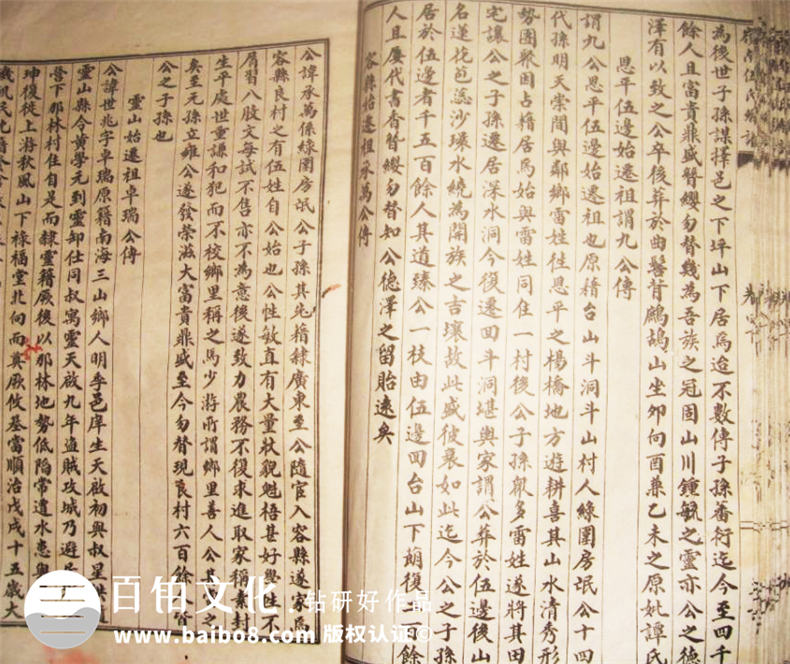 為後世子孫謀擇邑之下坪山下居焉迨不數傳子孫蕃衍迄今至四千
餘人且富貴鼎盛簪纓勿替幾為吾族之冠固山川鍾毓之靈亦公之德
澤有以致之公卒後葬於曲髻背鷓鴣山坐卯向酉兼乙未之原妣譚氏
恩平伍邊始遷祖謂九公傳
謂九公恩平伍邊始遷祖也原籍台山斗洞斗山村人緣圍房氓公十四
代孫明天崇間與鄰鄉雷姓徃恩平之楊橋地方遊耕喜其山水清秀形
勢團聚因占籍居焉始與雷姓同住一村後公子孫眾多雷姓遂將其田
宅讓公之子孫遷居深水洞今復遷回斗洞堪輿家謂公葬於伍邊後山
名蓮花芭蕊沙環水繞為開族之吉壤故此盛彼衰如此迄今公之子孫
居於伍邊者千五百餘人其道臻公一枝由伍邊回台山下蓢復二百餘
人且屢代書香簪纓勿替知公德澤之留貽遠矣
容縣始遷祖承萬公傳
公諱承萬係緣圍房氓公子孫其先籍隸廣東至公隨官入容縣遂家焉
容縣良村之有伍姓自公始也公性敏直有大量狀貌魁梧甚好學
屑習八股文每試不售亦不為意後遂致力農務不復求進取家稱
生平處世重謙和犯而不校鄉里稱之馬少游所謂鄉里善人公其
矣至元孫立雍公遂發榮滋大富貴鼎盛至今勿替現良村六百餘
公之子孫也
靈山始遷祖卓瑞公傳
公諱世兆字卓瑞原籍南海三山鄉人明季邑庠生天啟初與叔星
靈山縣令黃學元到靈卸仕同叔寓靈天啟九年盜賊攻城乃避
營下那林村住自是而隸靈籍厥後以那林地勢低陷常遭水患與
坤復徙上游秋風山下祿福堂北向而奠厥攸基富順治戊戌十五歲大
百铂文化
钻研好作品
www.baibo8.com 版权认证©